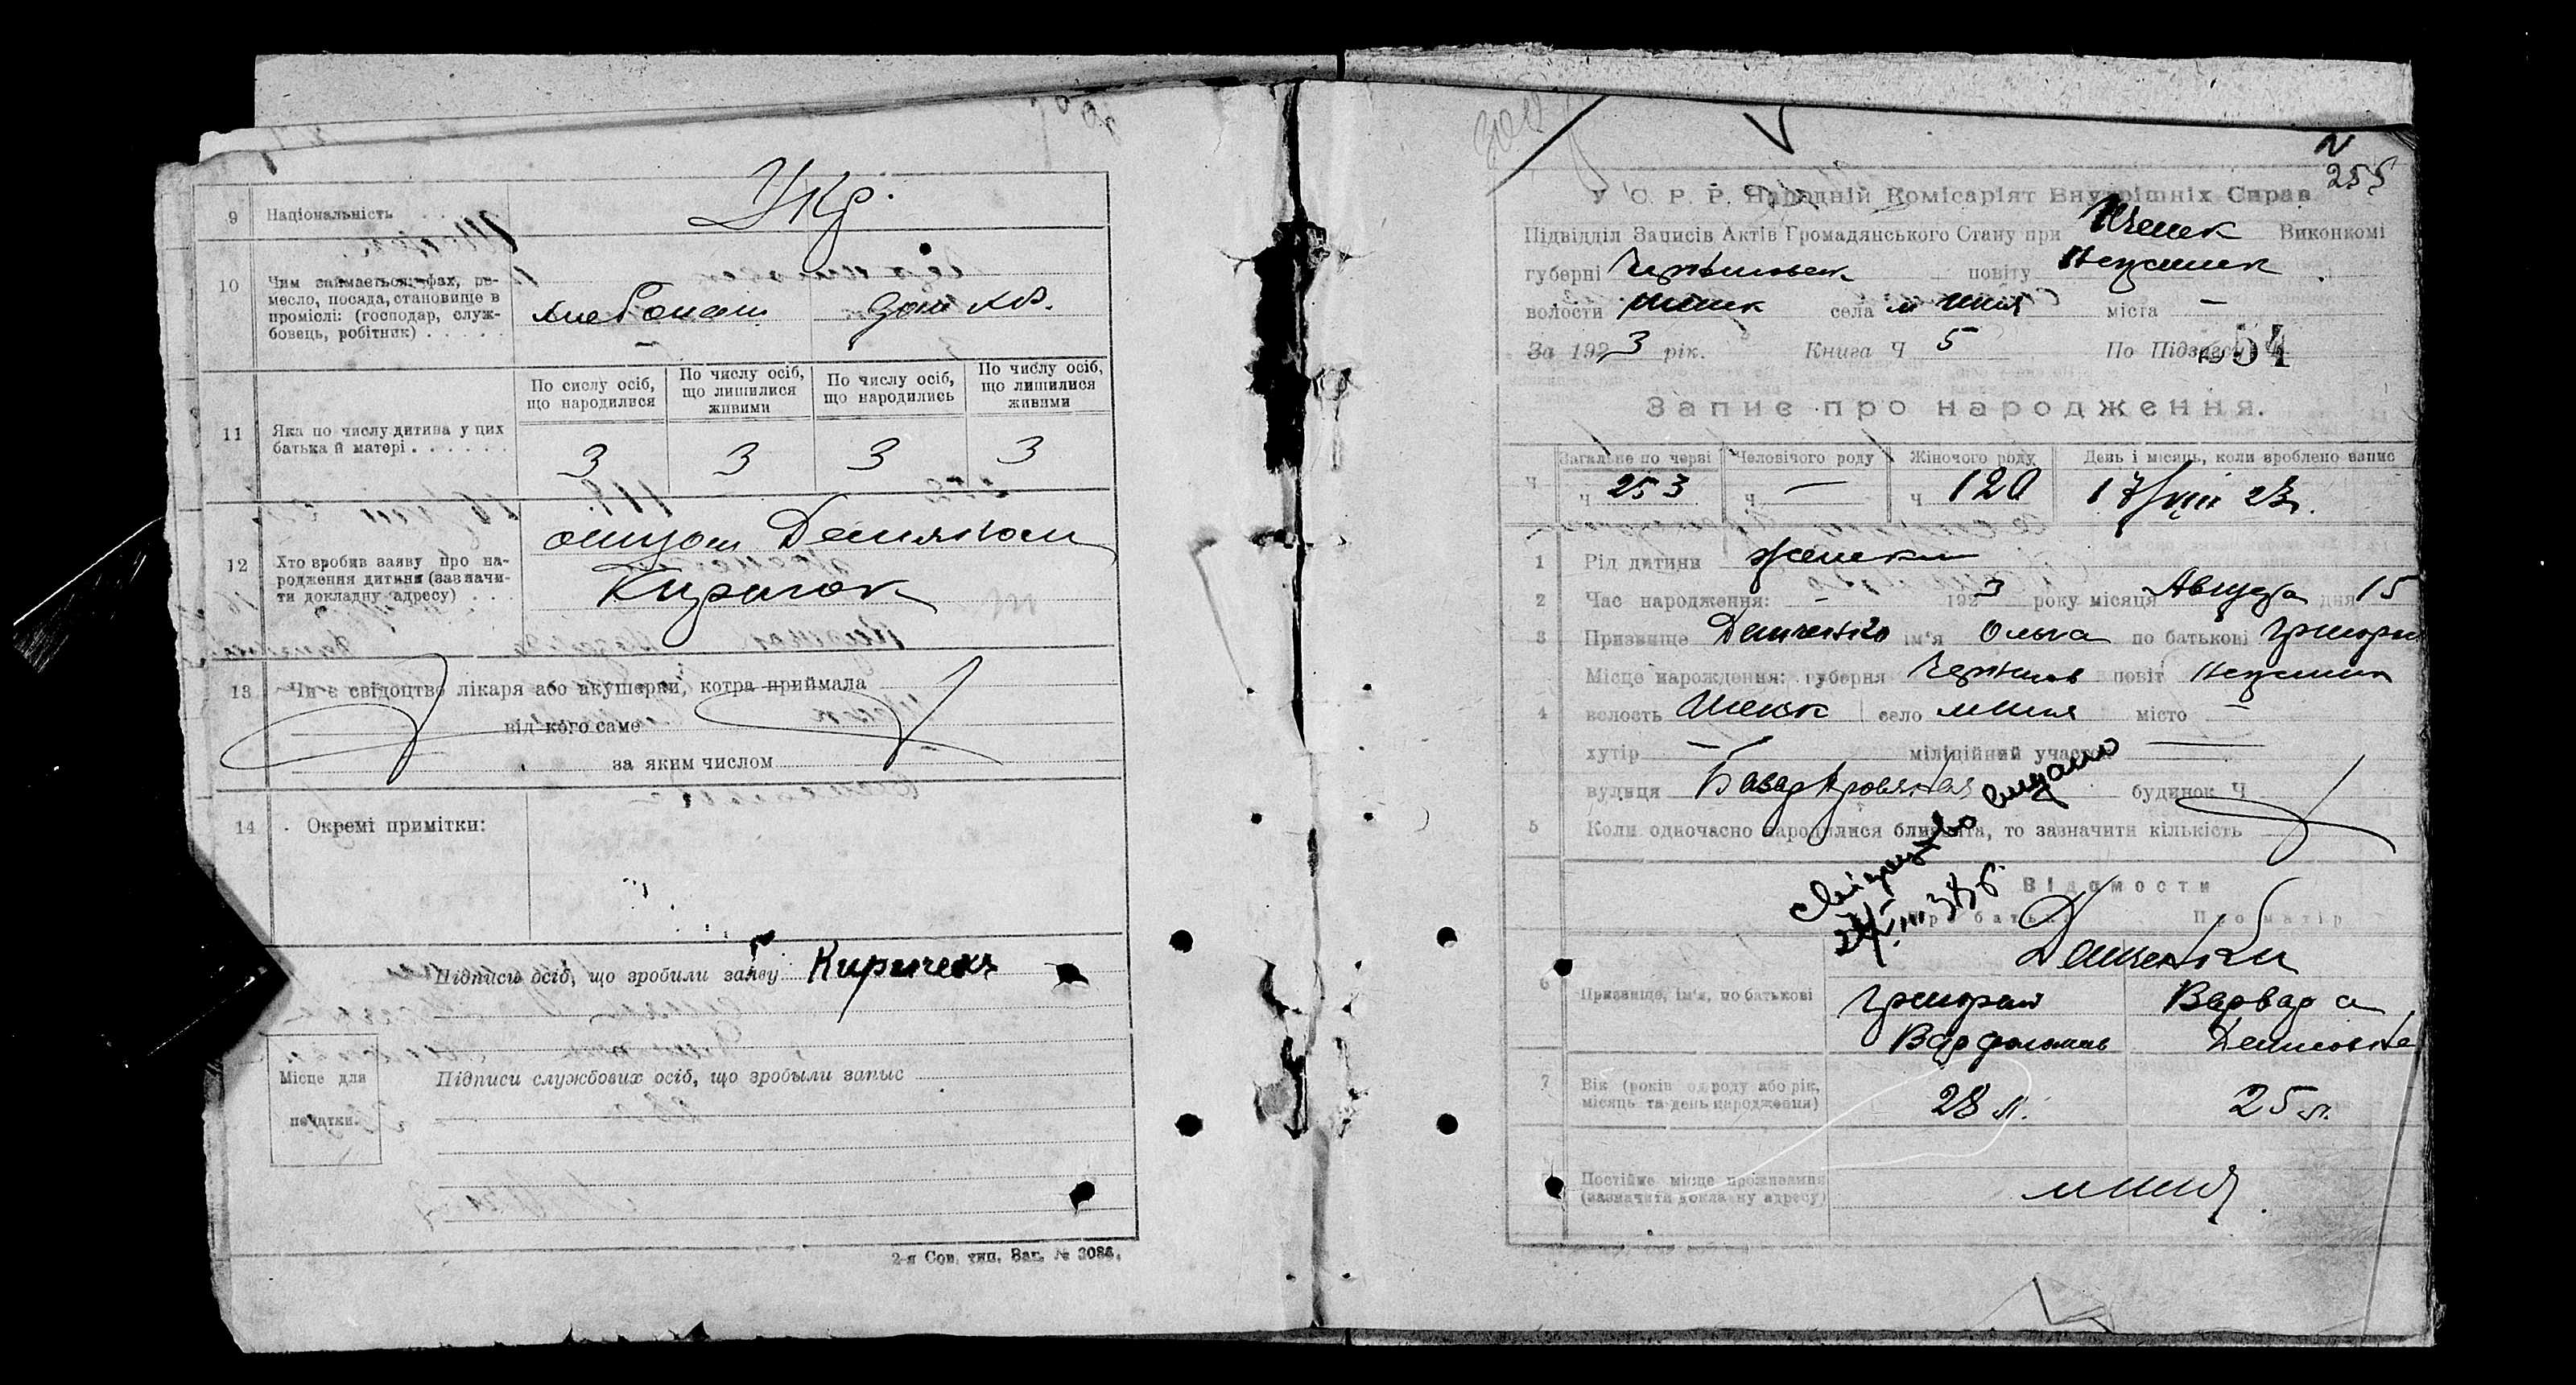 9 Національність Укр.
10 Чим займається: фах, ремесло, посада, становище в проміслі: (господар, службовець, робітник) хлебопаш дом хоз.
11 Яка по числу дитина у цих батька й матері
По сислу осіб, що народилися
По числу осіб, що лишилися живими
По числу осіб, що народились
По числу осіб, що лишилися живими
3 3 3 3
12 Хто вробив заяву про народження дитини (зазначити докладну адресу)
отцом
13 Чи є свідоцтво лікаря або акушерки, котра приймала
від кого саме
за яким числом
14 Окремі примітки:
Підписи осіб, що зробили заяву
Місце для печатки.
Підписи службових осіб, що зробыли запис
2-я Сов. тип. Заг. № 3086.
N
255
У С. Р. Р. Народній Комісаріят Внутрішніх Справ
Підвідділ Записів Актів Громадянського Стану при Ичнек Виконкомі
губерні Черниговск повіту Нежинск
волости села м Ичня міста —
За 1923 рік. Книга Ч 5 По Підзагсу 54
Запис про народження.
Загальне по черві Человічого роду Жіночого роду День і місяць, коли вроблено запис
Ч ч 253 ч — ч 120 17/VIII 23.
1 Рід дитини женски
2 Час народження: — 1923 року місяця Августа дня 15
3 Призвище Демченко ім'я Ольга по батькові Григорьев
Місце нарождення: губерня Чернигов повіт Нежинск
4 волость Ичнск село м Ичня місто —
хутір — міліційний участок —
вулиця будинок Ч
5 Коли одночасно народилися близнята, то зазначити кількість
Свідоцтво видано
Відомости
Про батька Про матір
Демченки
6 Призвище, ім'я, по батькові Григорий Варвара
Варфоломев Денисовна
7 Вік (років од роду або рік, місяць та день народження) 28 л. 25 л.
Постійне місце проживання (зазначити докладну адресу) м Ичня